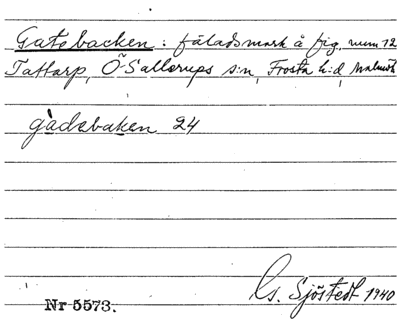 Gatebacken : fäladsmark å fig. num 12
Tattarp, Ö. Sallerups s:n, Frosta h:d, Malmöh
gàdebaken 24
Gs. Sjöstedt 1940
Nr 5573.